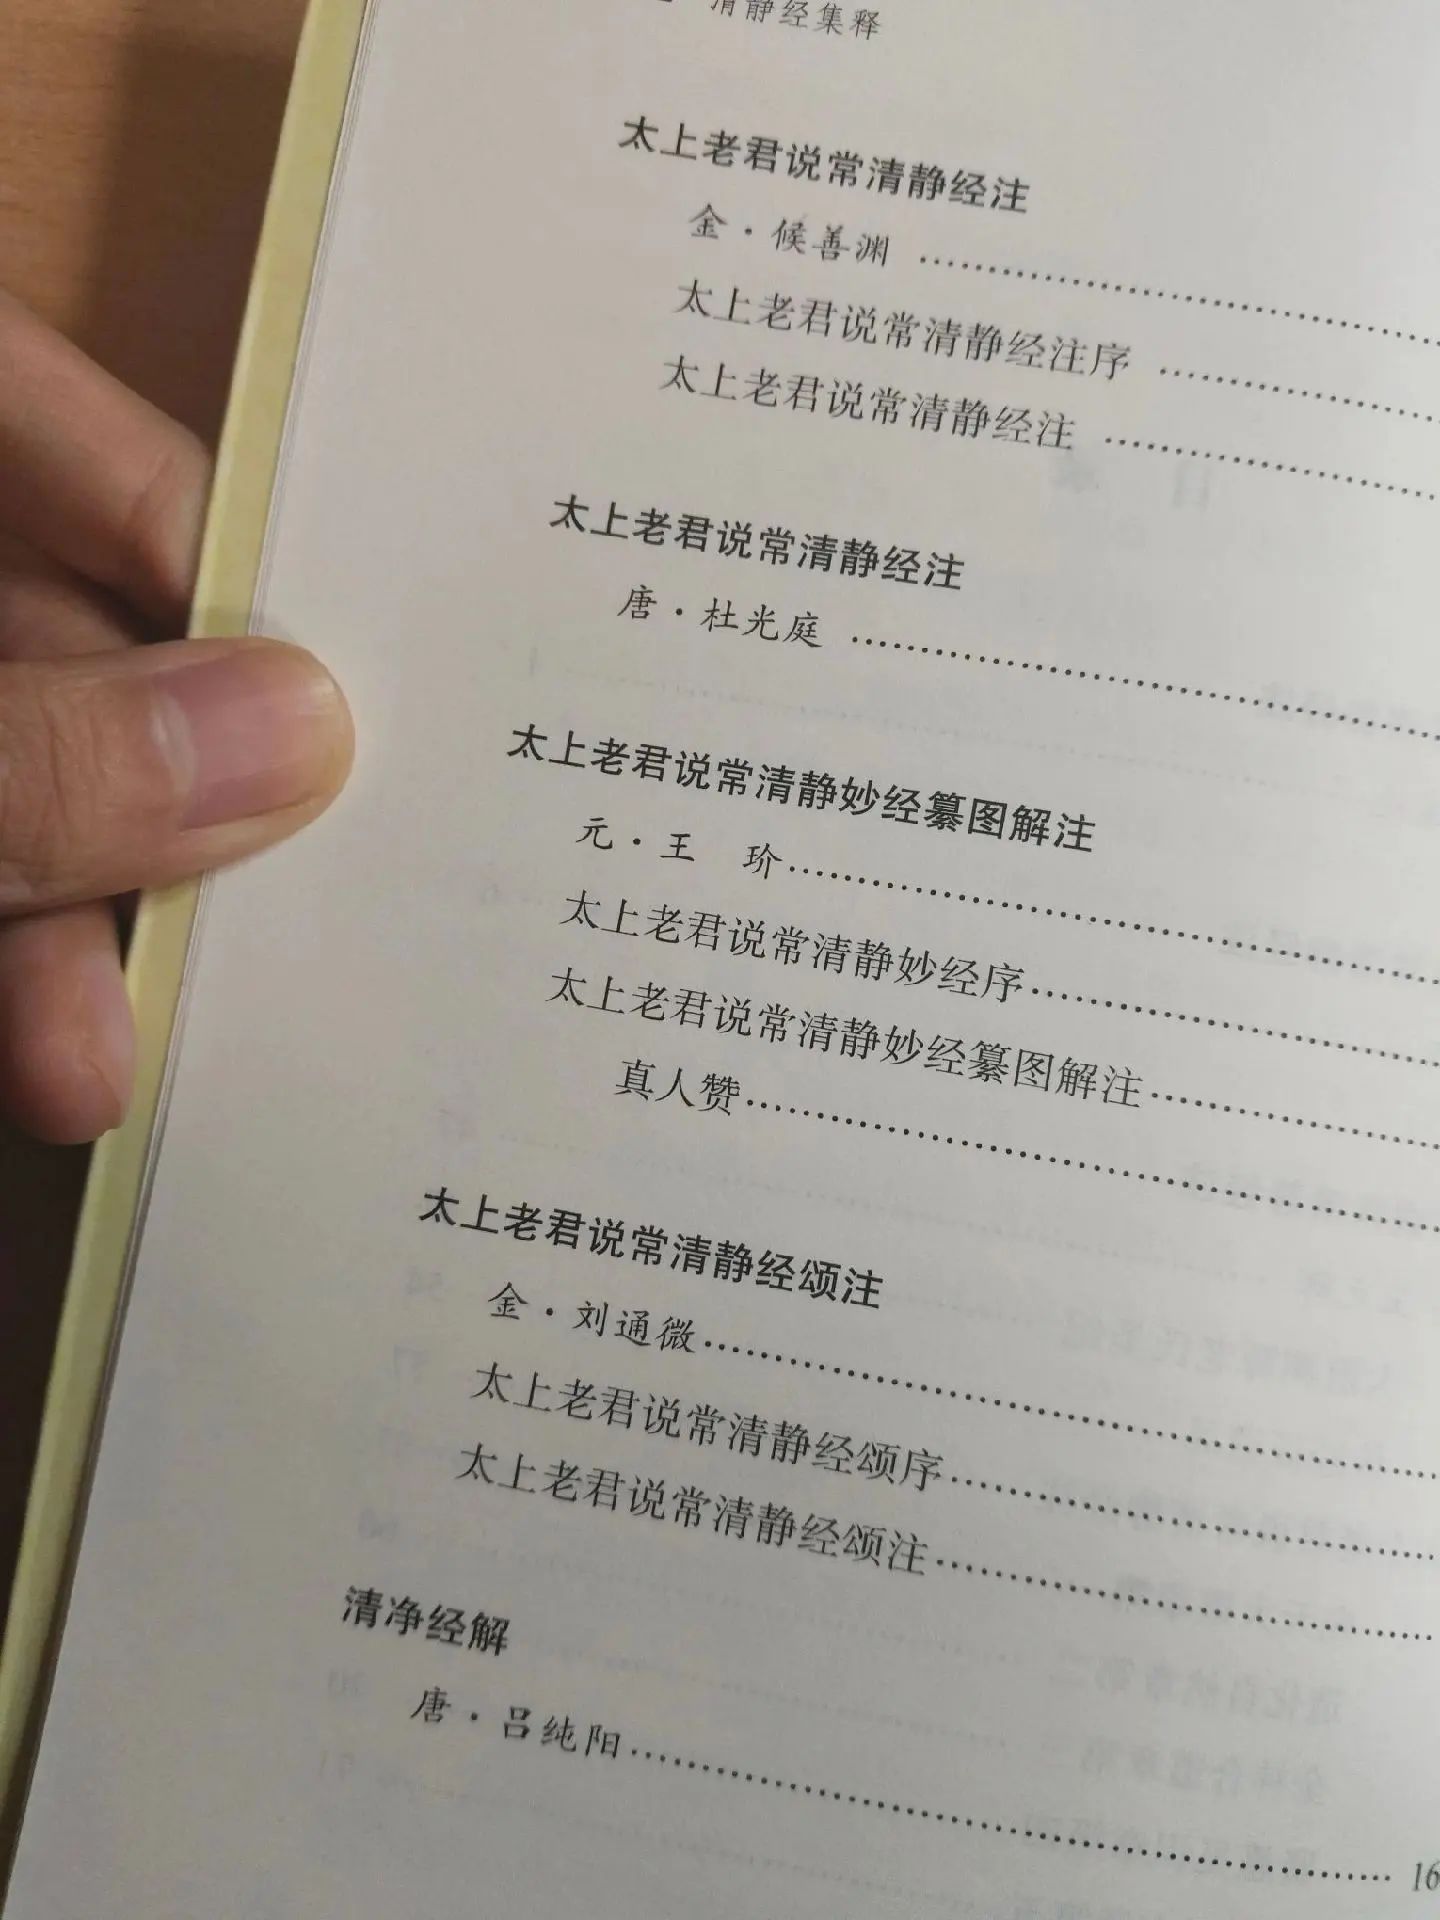 清静经集释
太上老君说常清静经注
金·候善渊
太上老君说常清静经注序
太上老君说常清静经注
太上老君说常清静经注
唐·杜光庭
太上老君说常清静妙经纂图解注
元·王 玠
太上老君说常清静妙经序
太上老君说常清静妙经纂图解注
真人赞
太上老君说常清静经颂注
金·刘通微
太上老君说常清静经颂序
太上老君说常清静经颂注
清净经解
唐·吕纯阳 16